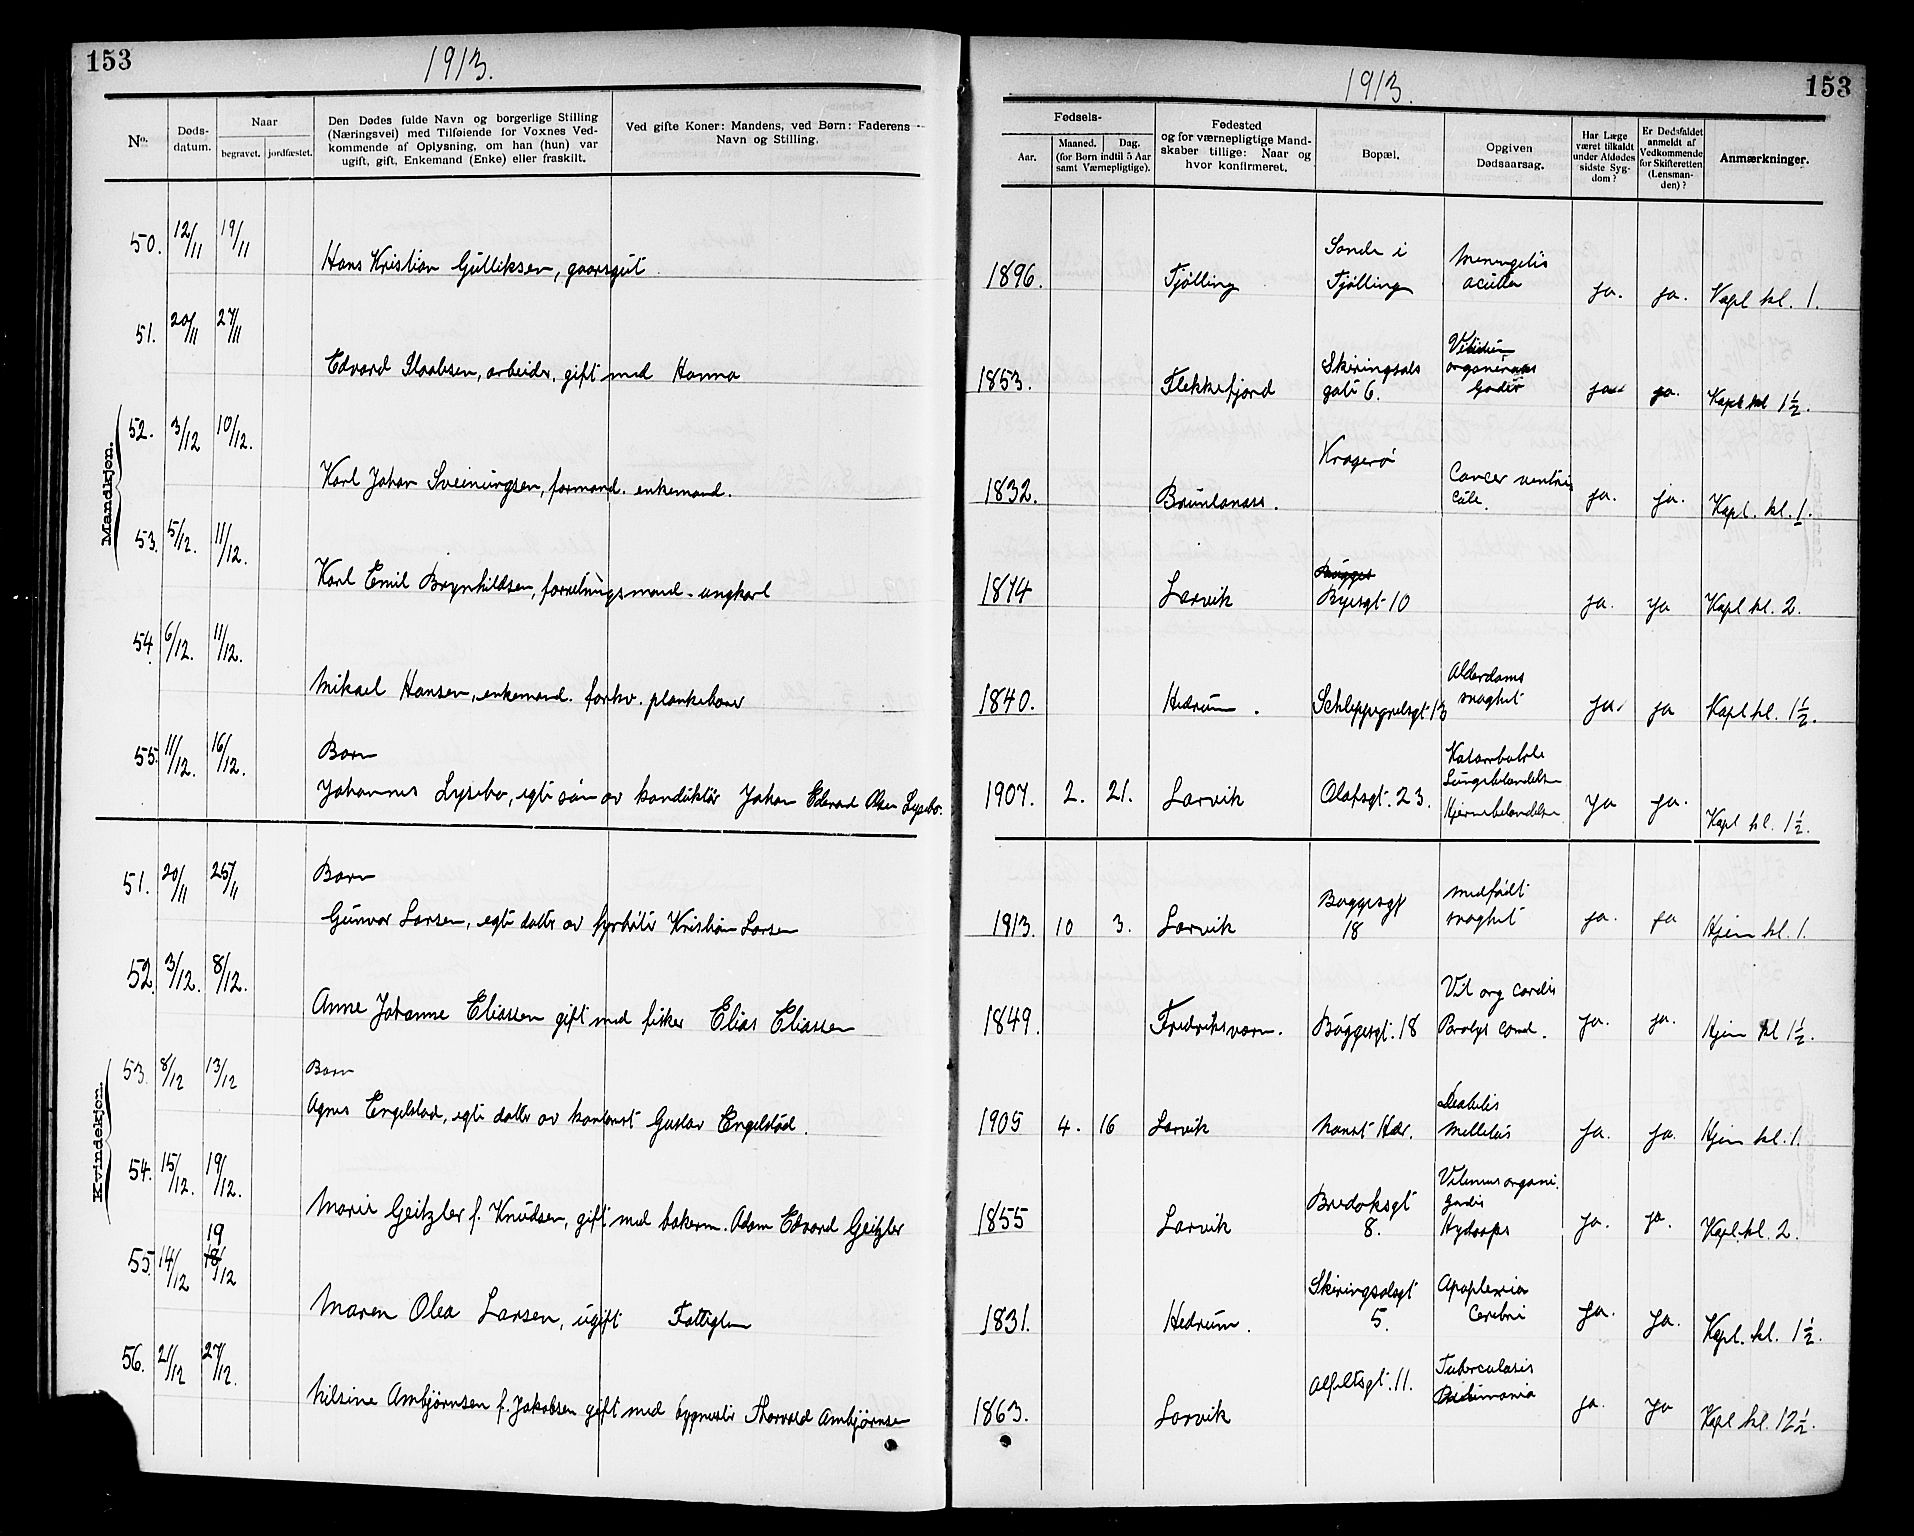 153
1913.
No.
Døds-
datum.
Naar
begravet.
jordfæstet.
Den Dødes fulde Navn og borgerlige Stilling
(Næringsvei) med Tilføiende for Voxnes Ved-
kommende af Oplysning, om han (hun) var
ugift, gift, Enkemand (Enke) eller fraskilt.
Ved gifte Koner: Mandens, ved Børn: Faderens
Navn og Stilling.
Mandkjøn.
50. 12/11 19/11
Hans Kristian Gulliksen, gaardsgut
51. 20/11 27/11
Edvard Isaksen, arbeider, gift med Hanna
52. 3/12 10/12.
Karl Johan Sveinungsen, formand. enkemand.
53. 5/12. 11/12.
Karl Emil Brynhildsen, forretningsmand. ungkarl
54. 6/12. 11/12.
Mikael Hansen, enkemand. forhv.
55. 11/12. 16/12.
Barn
Johannes Lysebo, egte søn av konduktør Johan Edvard Olsen Lysebo.
Kvindekjøn.
51. 20/11 25/11
Barn
Gunvor Larsen, egte datter av fyrbøter Kristian Larsen
52. 3/12. 8/12.
Anne Johanne Eliassen gift med fisker Elias Eliassen
53. 8/12 13/12
Barn
Agnes Engelstad, egte datter av kontorist Gustav Engelstad.
54. 15/12. 19/12.
Marie Geitzler f. Knudsen, gift med bakerm. Adam Edvard Geitzler
19
55. 14/12 18/12
Maren Olea Larsen, ugift Fattiglem
56. 21/12 27/12.
Nilsine Ambjørnsen f. Jakobsen gift med Thorvald Ambjørnsen
153
1913.
Fødsels-
Aar.
Maaned. Dag.
(for Børn indtil 5 Aar
samt Værnepligtige).
Fødested
og for værnepligtige Mand-
skaber tillige: Naar og
hvor konfirmeret.
Bopæl.
Opgiven
Dødsaarsag.
Har Læge
været tilkaldt
under Afdødes
sidste Syg-
dom?
Er Dødsfaldet
anmeldt af
Vedkommende
for Skifteretten
(Lensman-
den)?
Anmærkninger.
1896. Tjølling Sande i
Tjølling Meningitis
acuta ja. ja. Kapl kl. 1.
1853. Flekkefjord Skiringsals
gate 6. Vitium
organicum
ja. Kapl kl 1½.
1832. Brunlanæs. Kragerø Cancer ventri
culi. ja. ja. Kapl. kl. 1.
1874 Larvik Byesgt 10 ja. ja Kapl kl. 2.
1840. Hedrum. Schleppegrelsgt 13 Alderdoms
svaghet ja. ja Kapl kl. 1½.
1907. 2. 21. Larvik Olafsgt. 23. Katarrhalsk
Lungebetændelse
Hjernebetændelse ja ja. Kapl kl. 1½.
1913. 10 3. Larvik Buggesgt
18 medfødt
svaghet ja. ja Hjem kl. 1.
1849. Fredriksværn. Buggesgt. 18 Vit org cordis
Paralys cord. ja. ja. Hjem kl 1½.
1905 4. 16 Larvik Diabetes
mellitus ja. ja. Hjem kl. 1.
1855 Larvik
8.
Hydrops ja. ja. Kapl. kl. 2.
1831. Hedrum. Skiringsalsgt
5. Apoplexia
Cerebri ja. ja. Kapl. kl. 1½.
1863. Larvik 11. Tuberculosis
ja. ja Kapl kl. 12½.